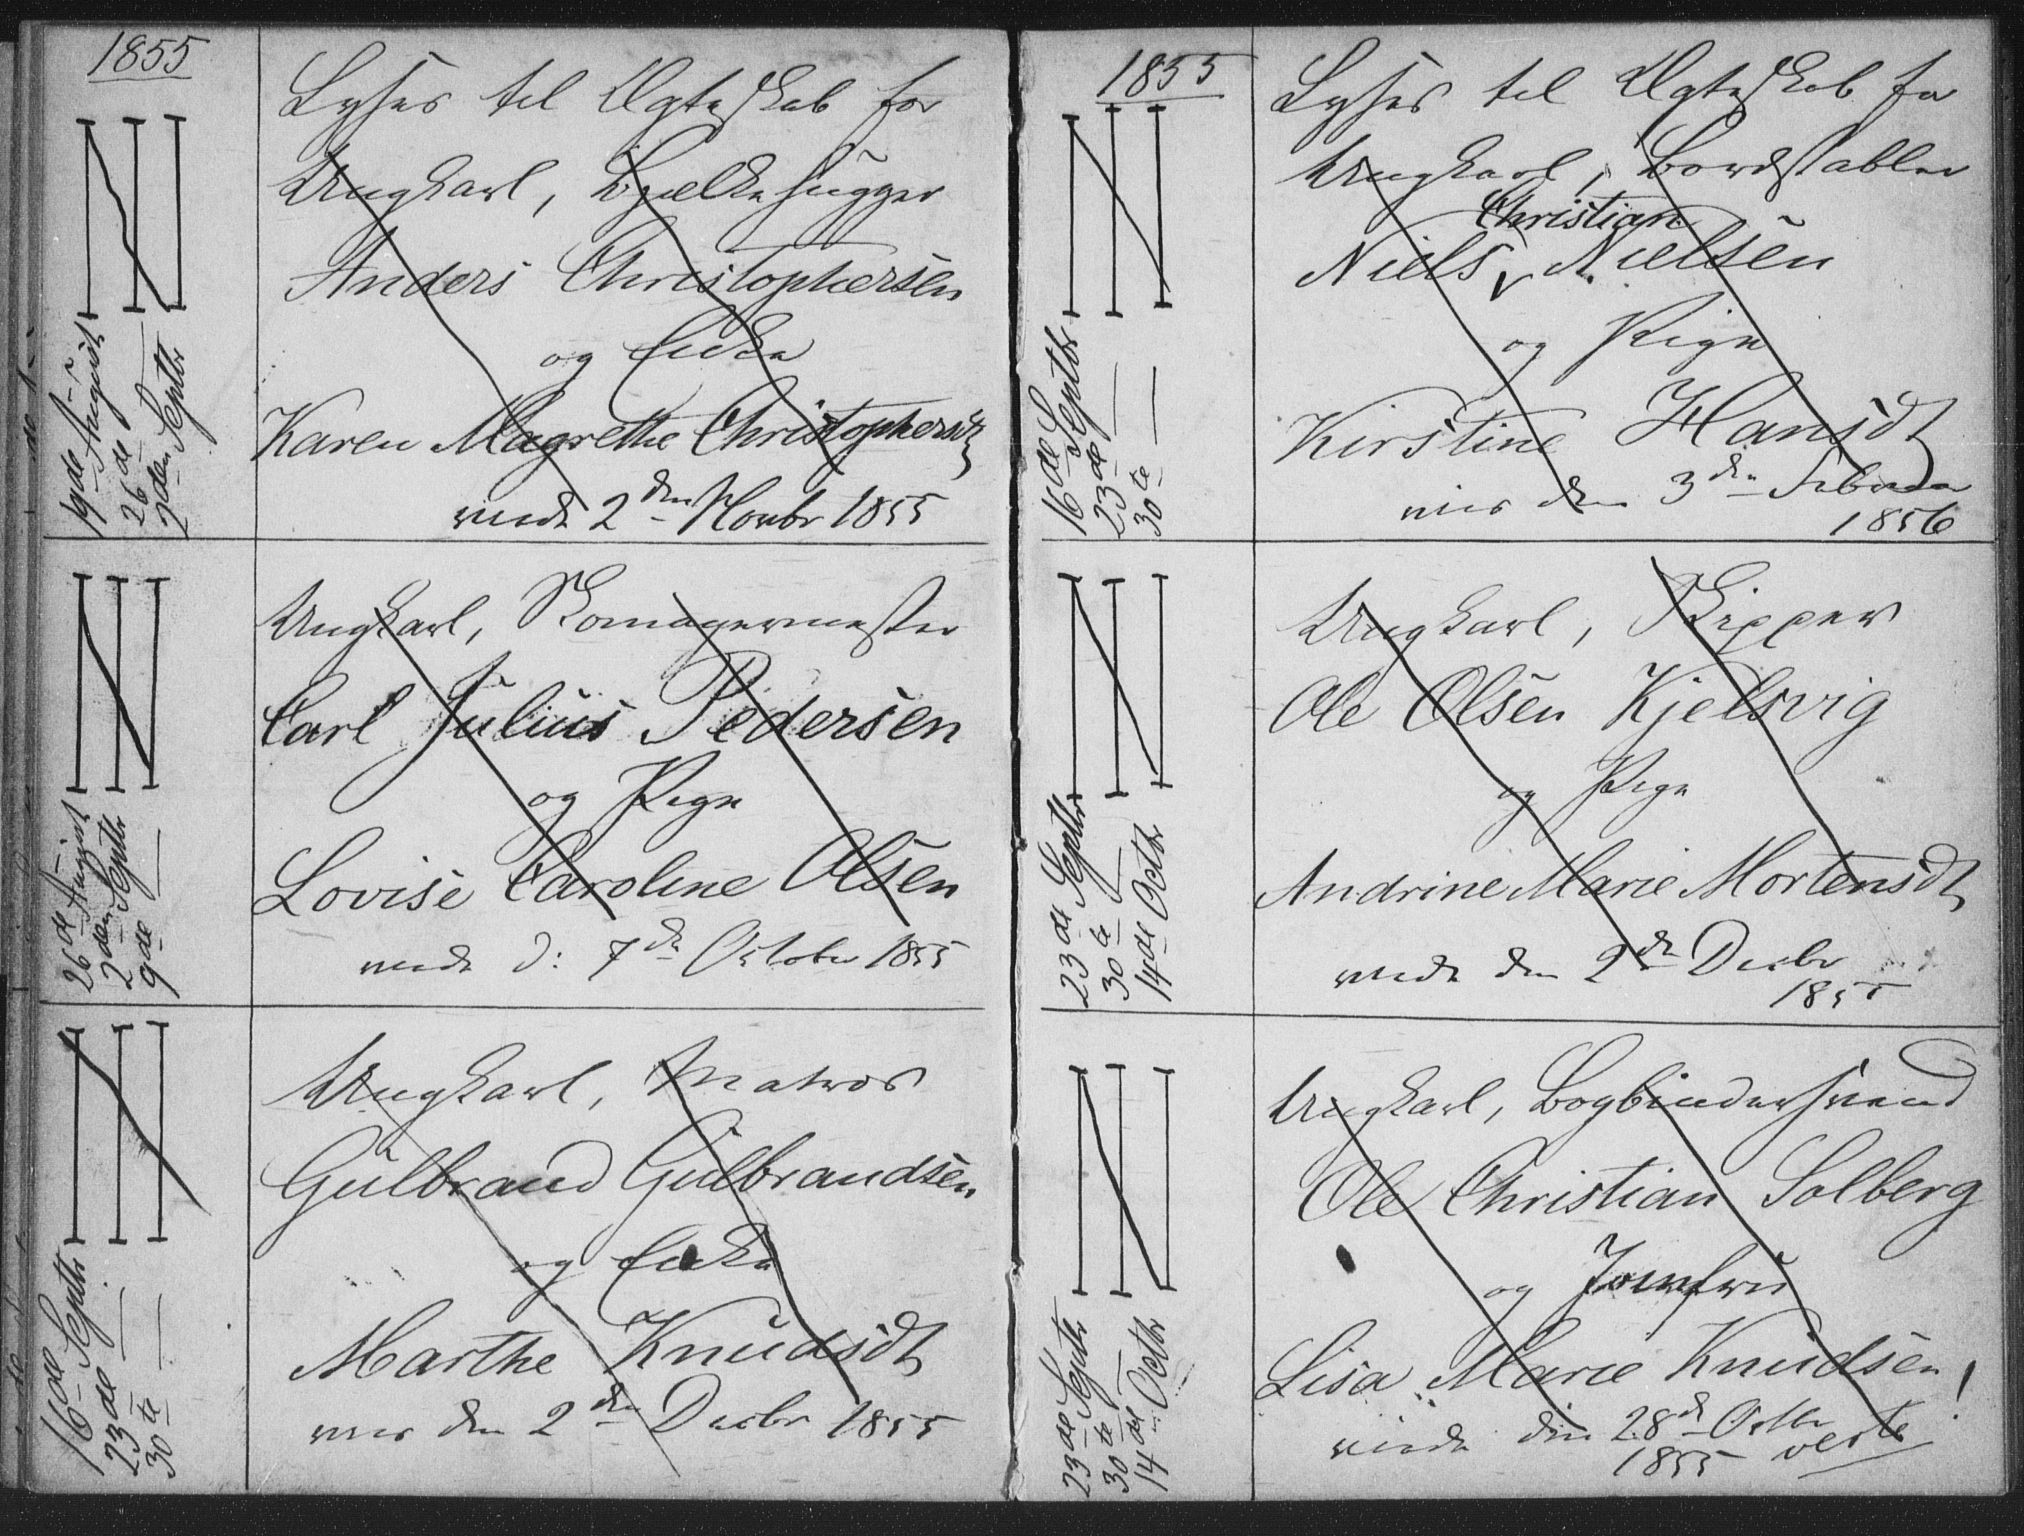 1855
Lyses til Ægteskab for
Ungkarl, Bjælkehugger
Anders Christophersen
og Enke
Karen Magrethe Christophersdt
viede 2den Novbr 1855
19de August
26de
2den Septbr
Ungkarl, Skomagermester
Carl Julius Pedersen
og Pige
Lovise Caroline Olsen
viede d: 7de October 1855
26de August
2den Septbr
9de
Ungkarl, Matros
Gulbrand Gulbrandsen
og Enke
Marthe Knudsdt
vies den 2den Decbr 1855
16de Septbr
23de
30te
1855
Lyses til Ægteskab for
Ungkarl, Bordstabler
Christian
Niels Nielsen
og Pige
Kirstine Hansdt
vies den 3den Februar
1856
16de Septbr
23de
30te
Ungkarl, Skipper
Ole Olsen Kjelsvig
og Pige
Andrine Marie Mortensdt
viede den 2de Decbr
1855
23de Septbr
30te
14de Octbr
Ungkarl, Bogbindersvend
Ole Christian Solberg
og Jomfru
Lisa Marie Knudsen
viede den 28de Octbr
1855 verte!
23de Septbr
30te
14de Octbr